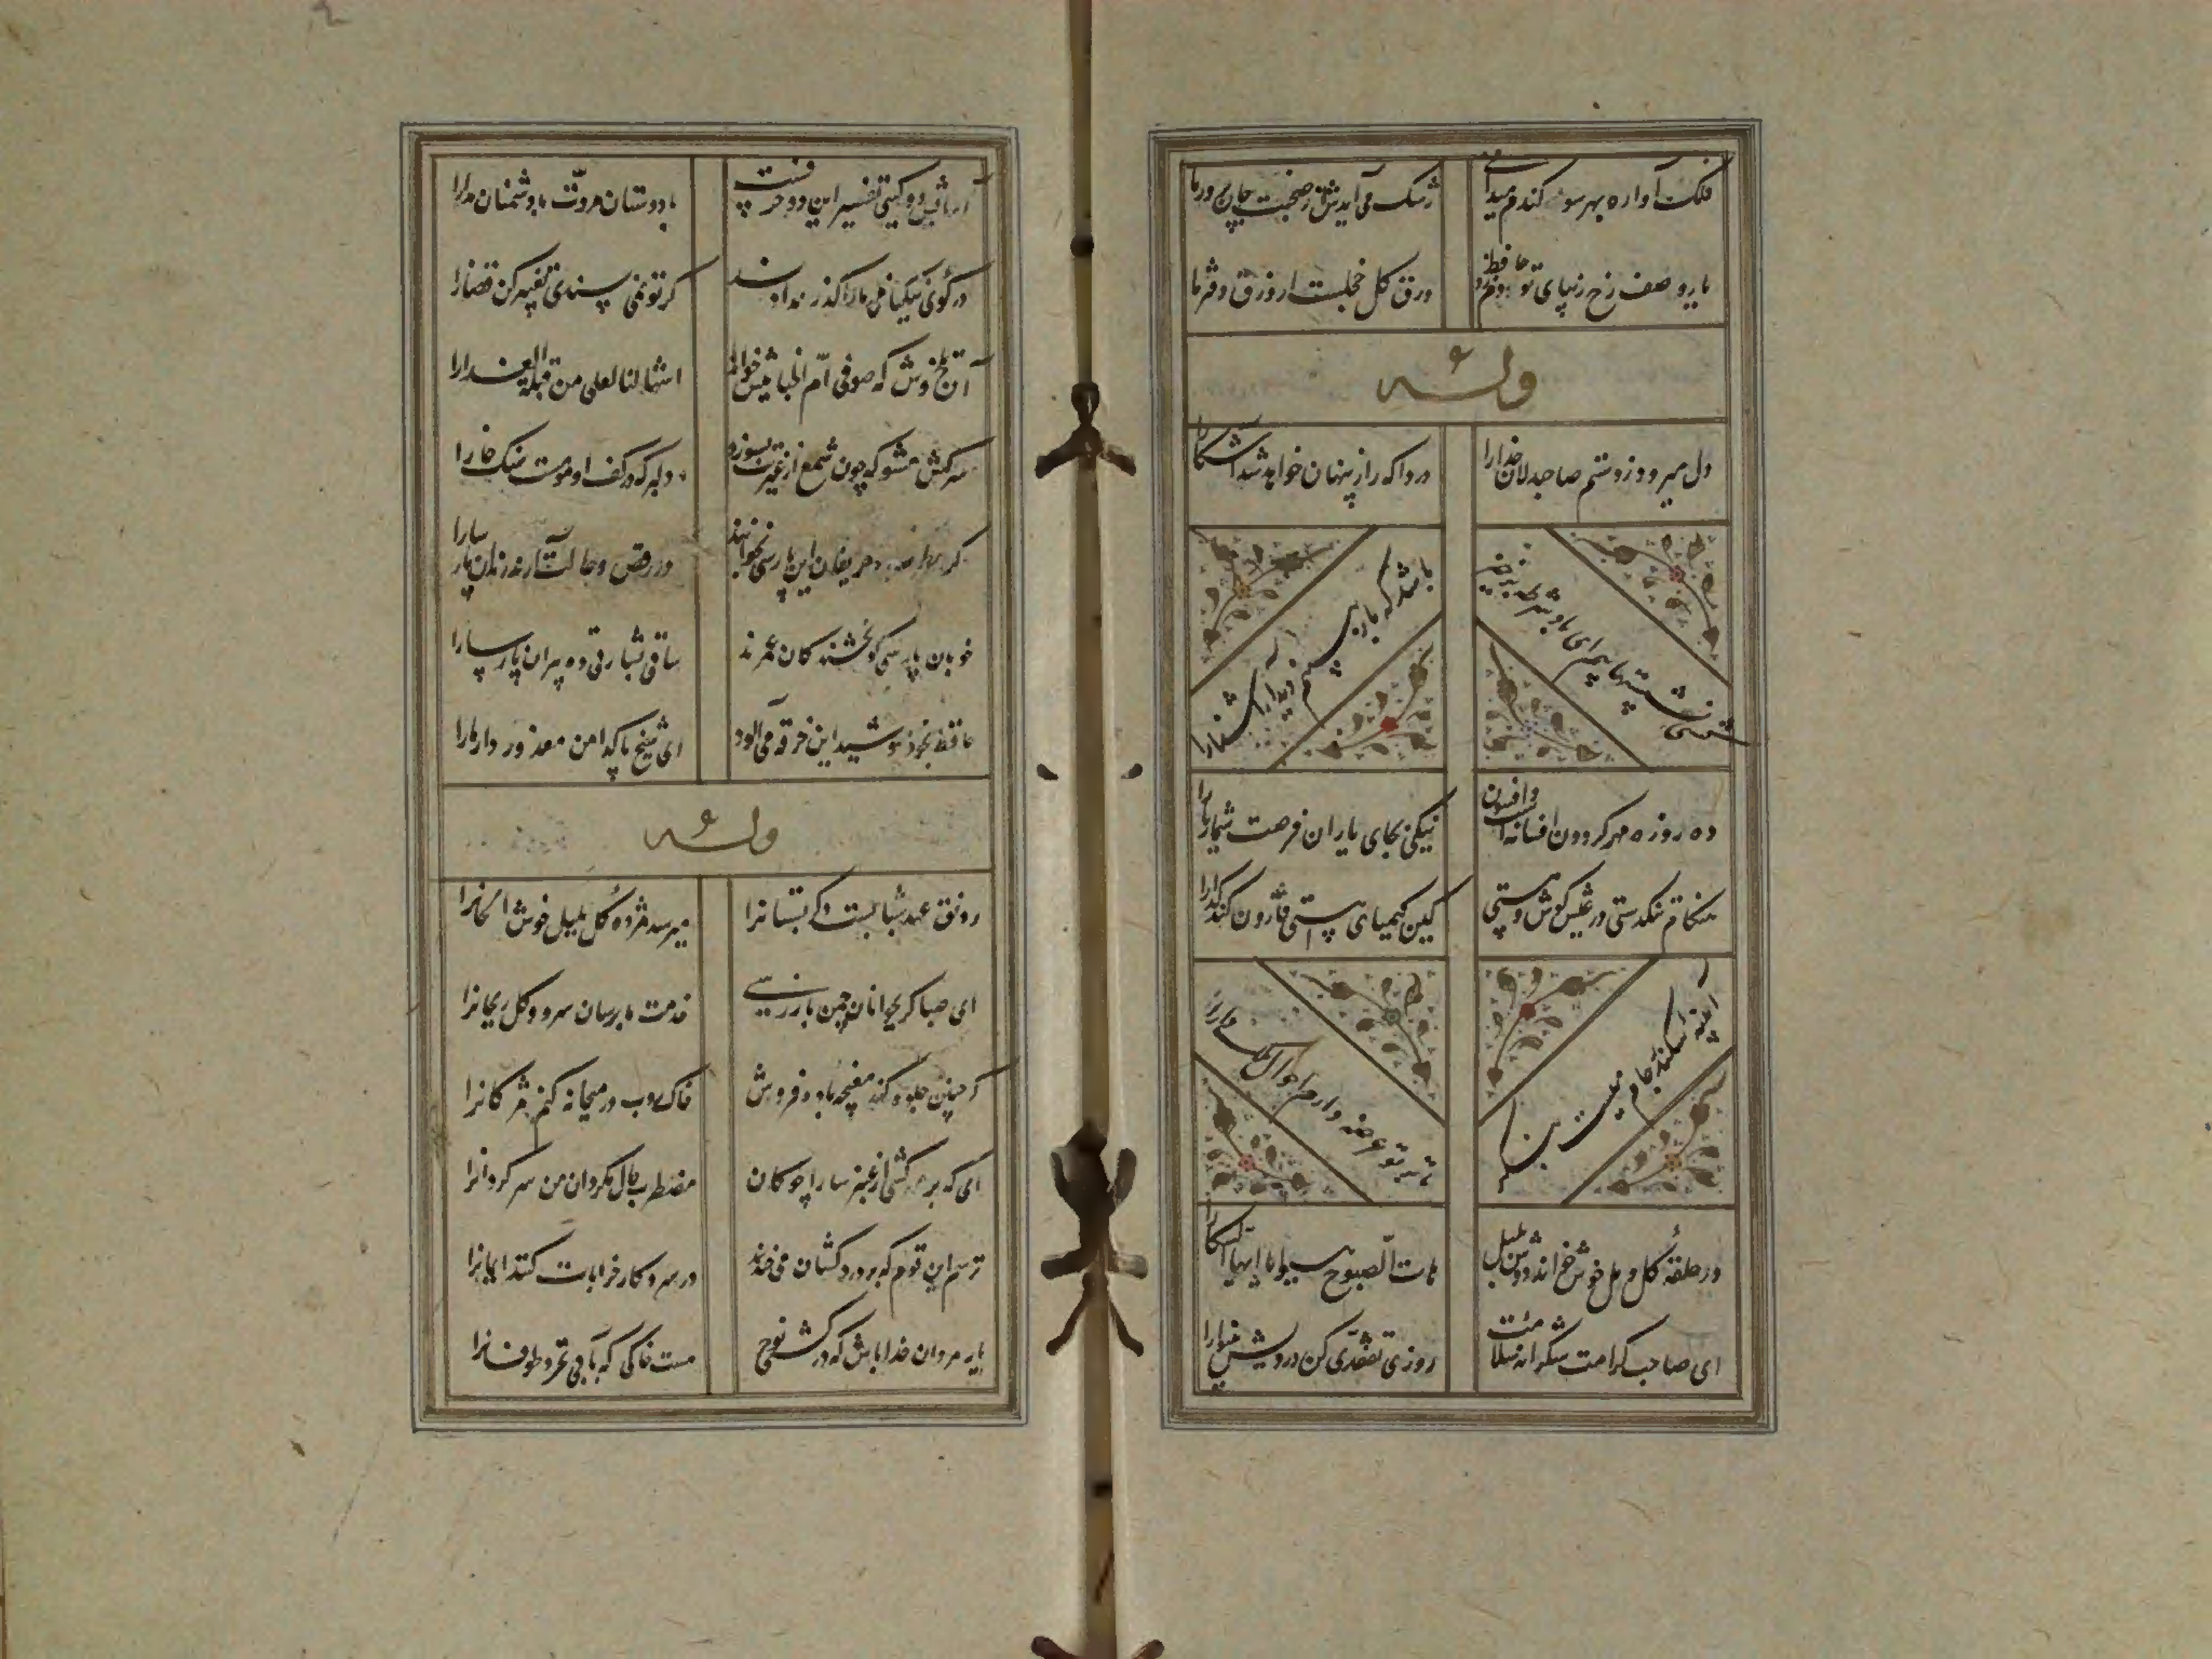 فلک آواره بهر سو کندم میدانی
رشک می آیدش از صحبت جان پرور ما
تا به وصف رخ زیبای تو حافظ دم زد
ورق گل خجلست از ورق دفتر ما
وله
دل میرود ز دستم صاحبدلان خدارا
دردا که راز پنهان خواهد شد آشکارا
کشتی نشستگانیم ای باد شرطه برخیز
باشد که باز بینیم دیدار آشنا را
ده روزه مهر کردون افسانه است و افسون
نیکی بجای یاران فرصت شمار یارا
هنکام تنکدستی در عیش کوش و مستی
کین کیمیای هستی قارون کند کدارا
آیینه سکندر جام میست بنکر
تا بر تو عرضه دارد احوال ملک دارا
در حلقهٔ کل و مل خوش خواند دوش بلبل
هات الصبوح هبوا یا ایها السکارا
ای صاحب کرامت شکرانه سلامت
روزی تفقدی کن درویش بینوارا
آسایش دو کیتی تفسیر این دو حرفست
با دوستان مروّت با دشمنان مدارا
در کوی نیکنامی مارا کذر ندادند
کر تو نمی پسندی تغییر کن قضارا
آن تلخ وش که صوفی امّ الخبایثش خواند
اشهی لنا و احلی من قبلة العذارا
سرکش مشو که چون شمع از غیرتت بسوزد
دلبر که در کف او مومست سنک خارا
کر مطرب حریفان این پارسی بخواند
در رقص و حالت آرد رندان پارسارا
خوبان پارسی کو بخشندکان عمرند
ساقی بشارتی ده پیران پارسارا
حافظ بخود نپوشید این خرقه می آلود
ای شیخ پاکدامن معذور دار مارا
وله
رونق عهد شبابست دکر بستانرا
میرسد مژده کل بلبل خوش الحانرا
ای صبا کر بجوانان چمن باز رسی
خدمت ما برسان سرو و کل و ریحانرا
کر چنین جلوه کند مغبچه باده فروش
خاکروب در میخانه کنم مژکانرا
ای که بر مه کشی از عنبر سارا چوکان
مضطرب حال مکردان من سرکردانرا
ترسم این قوم که بر دردکشان می خندند
در سر و کار خرابات کنند ایمانرا
یار مردان خدا باش که در کشتی نوح
هست خاکی که بآبی نخرد طوفانرا